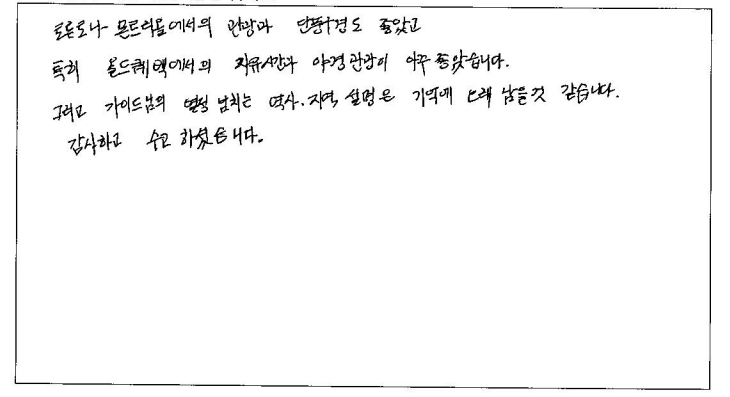 토론토나 몬트리올에서의 관광과 단풍구경도 좋았고
특히 올드퀘백에서의 자유시간과 야경관광이 아주 좋았습니다.
그리고 가이드님의 열정 넘치는 역사.지역, 설명은 기억에 오래 남을것 같습니다.
감사하고 수고 하셨습니다.